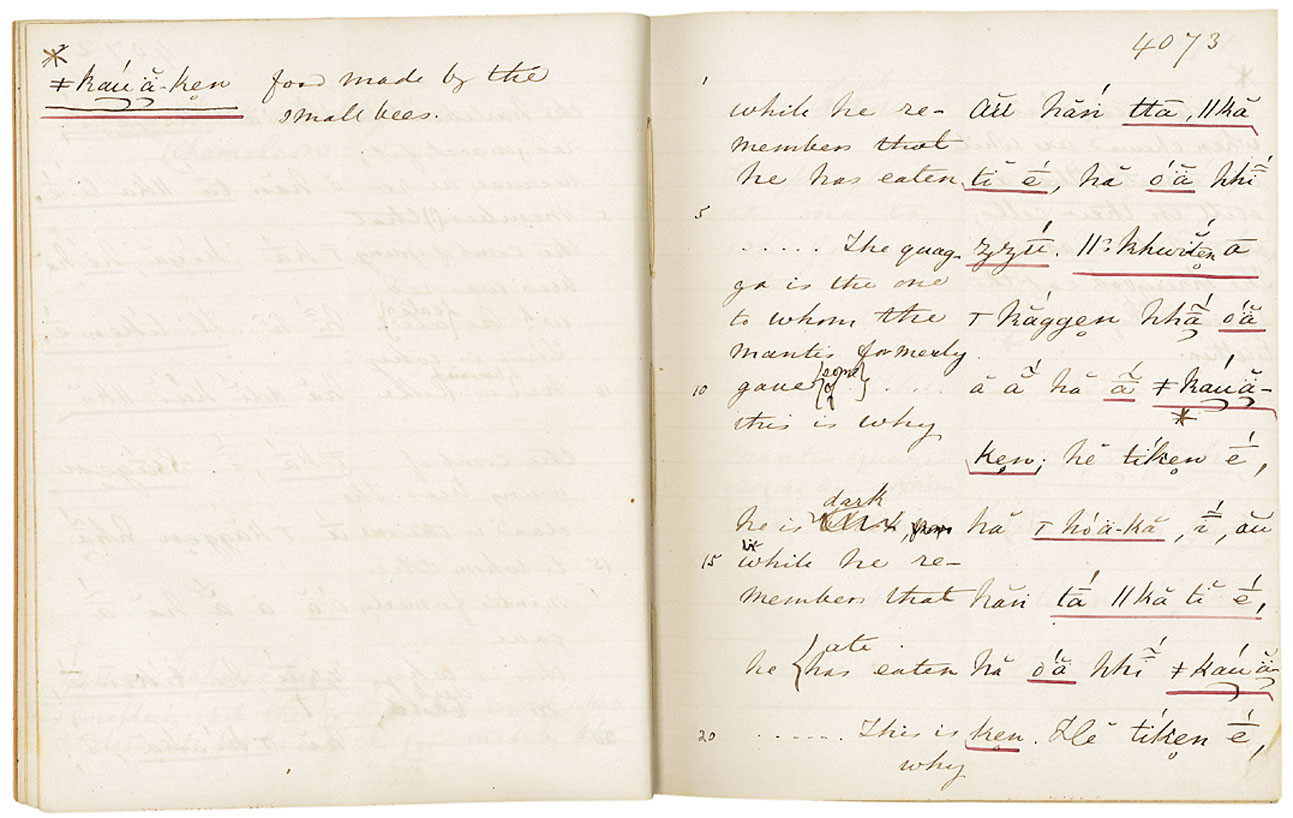 *
ǂkaúä-ken food made by the
small bees.
4073
1
while he re- ău hăń ttā, ǁkă
members that
he has eaten tĭ é, hă óä hhĭ
5
..... The quag- zzū́. ǁkhwĭten ā
ga is the one
to whom the ⊤ kắggen hhā́ óä
mantis formerly
10 gave {some of} .... ā ā hă ā́ ǂkaúä-
this is why *
ken; hĕ tíken é,
dark
he is hă ⊤ hóä-kă, ā́, ău
15 while he re-
members that hăń tā́ ǁkă tĭ é,
ate
he {has eaten hă óä hhĭ ǂkaúä-
20 ...... This is ken. Hĕ tíken é,
why